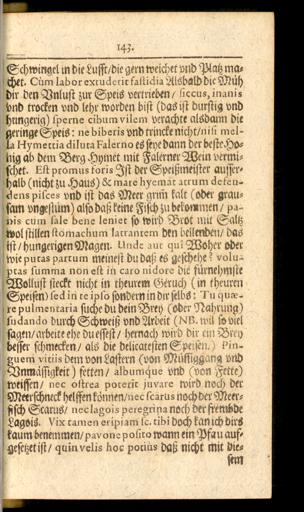 143.
Schwingel in die Lufft/die gern weichet vnd Platz ma-
chet. Cùm labor extuderit fastidia Alsbald die Müh
dir den Vnlust zur Speis vertrieben/ siccus, inanis
vnd trocken vnd lehr worden bist (das ist durstig vnd
hungerig) sperne cibum vilem verachte alsdann die
geringe Speis: ne biberis vnd trincke nicht/nisi mel-
la Hymettia diluta Falerno es seye dann der beste Ho-
nig ab dem Berg Hymet mit Falerner Wein vermi-
schet. Est promus foris Ist der Speißmeister ausser-
halb (nicht zu Haus) & mare hyemat atrum defen-
dens pisces vnd ist das Meer grim̃ kalt (oder grau-
sam vngestüm) also daß keine Fisch zu bekommen/ pa-
nis cum sale bene leniet so wird Brot mit Saltz
wol stillen stomachum latrantem den bellenden/ das
ist/ hungerigen Magen. Unde aut quî Woher oder
wie putas partum meinest du daß es geschehe? volu-
ptas summa non est in caro nidore die fürnehmste
Wollust steckt nicht in theurem Geruch (in theuren
Speisen) sed in te ipso sondern in dir selbs: Tu quæ-
re pulmentaria suche du dein Brey (oder Nahrung)
sudando durch Schweiß vnd Arbeit (NB. wil so viel
sagen/arbeite ehe du essest/ hernach wird dir ein Brey
besser schmecken/ als die delicatesten Speisen.) Pin-
guem vitiis dem von Lastern (von Müssiggang vnd
Vnmässigkeit) fetten/ albumque vnd (von Fette)
weissen/ nec ostrea poterit juvare wird noch der
Meerschneck helffen können/nec scarus noch der Meer-
fisch Scarus/ nec lagois peregrina noch der frembde
Lagois. Vix tamen eripiam &c. tibi doch kan ich dirs
kaum benemmen/ pavone posito wann ein Pfau auf-
gesetzet ist/ quin velis hoc potiùs daß nicht mit die-
sem